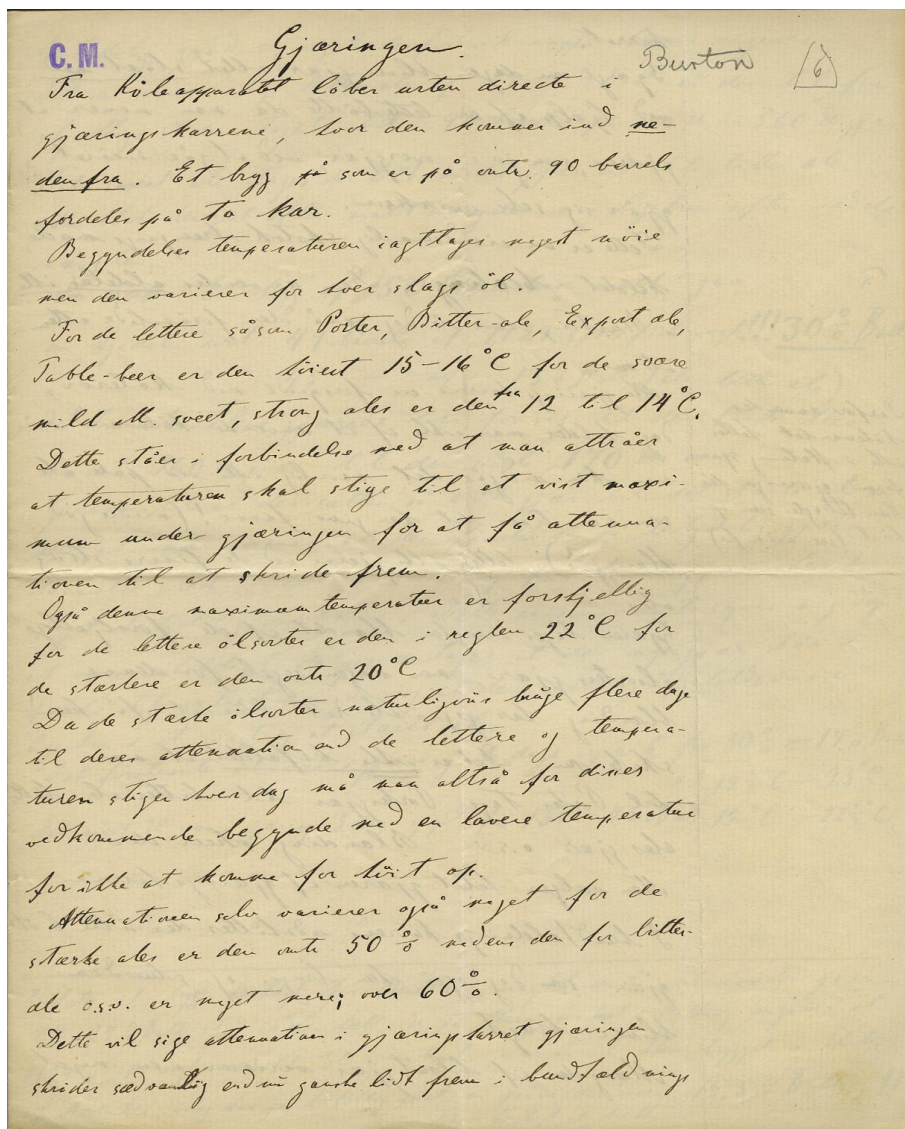 C. M.
Gjæringen.
Burton
6
Fra Köleapparatet löber urten directe i
gjæringskarrene, hvor den kommer ind ne-
denfra. Et bryg på som er på omtr. 90 barrels
fordeles på to kar.
Begyndelses temperaturen iagttages meget nöie
men den varierer for hver slags öl.
For de lettere såsom Porter, Bitter-ale, Export ale,
Table-beer er den höiest 15-16°C for de svære
mild M. sweet, strong ales er den fra 12 til 14°C.
Dette ståer i forbindelse med at man attråer
at temperaturen skal stige til et vist maxi-
mum under gjæringen for at få attenua-
tionen til at skride frem.
Også denne maximum temperatur er forskjellig
for de lettere ölsorter er den i reglen 22°C for
de stærkere er den omtr 20°C
Da de stærke ölsorter naturligvis bruge flere dage
til deres attenuation end de lettere og tempera-
turen stiger hver dag må man altså for disses
vedkommende begynde med en lavere temperatur
for ikke at komme for höit op.
Attenuationen selv varierer også noget for de
stærke ales er den omtr 50 % medens den for bitter-
ale o.s.v. er noget mere; over 60 %.
Dette vil sige attenuation i gjæringskarret gjæringen
skrider sædvanlig endnu ganske lidt frem i bundfældnings